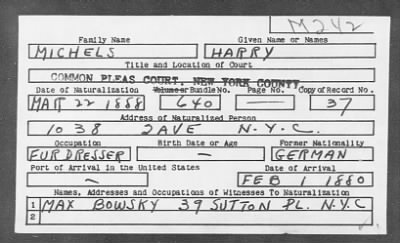 M242
Family Name Given Name or Names
MICHELS HARRY
Title and Location of Court
COMMON PLEAS COURT, NEW YORK COUNTY
Date of Naturalization Volume or Bundle No. Page No. Copy of Record No.
MAR 22 1888 640 — 37
Address of Naturalized Person
1038 2AVE N.Y.C.
Occupation Birth Date or Age Former Nationality
FUR DRESSER — GERMAN
Port of Arrival in the United States Date of Arrival
— FEB 1 1880
Names, Addresses and Occupations of Witnesses To Naturalization
1 MAX BOWSKY 39 SUTTON PL. N.Y.C
2